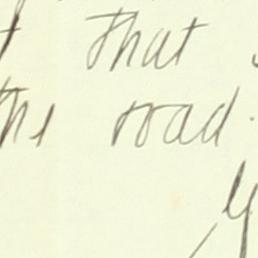 that
the road.